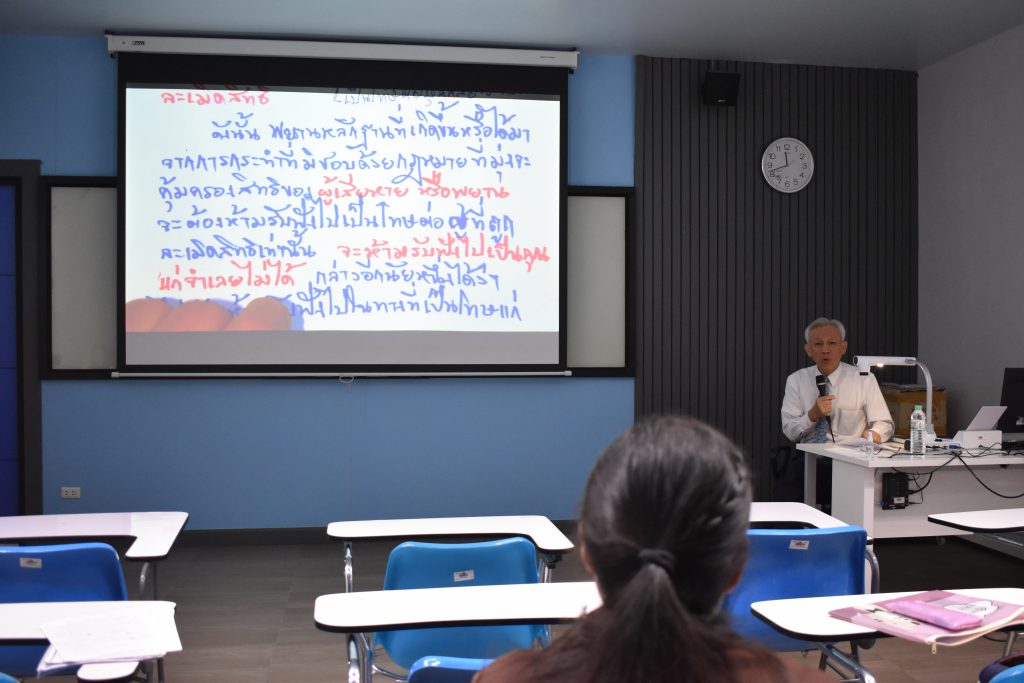 ละเมิดสิทธิ
ดังนั้น พยานหลักฐานที่เกิดขึ้นหรือได้มา
จากการกระทำที่มิชอบด้วยกฎหมาย ที่มุ่งจะ
คุ้มครองสิทธิของ ผู้เสียหาย หรือพยาน
จะต้องห้ามรับฟังไปเป็นโทษต่อ ผู้ที่ถูก
ละเมิดสิทธิเท่านั้น จะห้ามรับฟังไปเป็นคุณ
แก่จำเลยไม่ได้ กล่าวอีกนัยหนึ่งได้ว่า
ฟังไปในทางที่เป็นโทษแก่